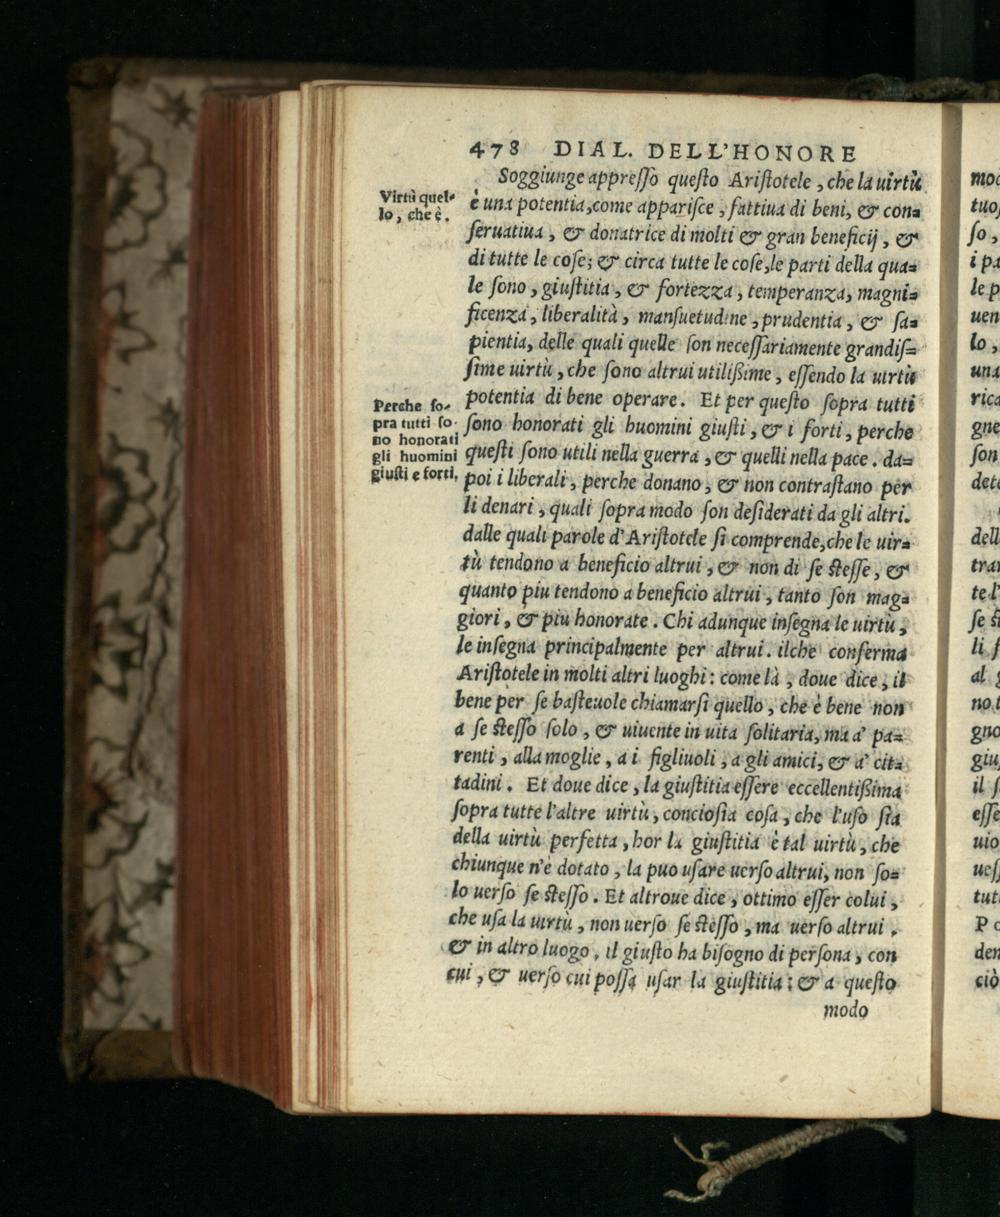 478 DIAL. DELL'HONORE
Soggiunge appresso questo Aristotele, che la uirtù
Virtù quel-
lo, che è.
è una potentia, come apparisce, fattiua di beni, & con=
seruatiua, & donatrice di molti & gran beneficij, &
di tutte le cose; & circa tutte le cose, le parti della qua=
le sono, giustitia, & fortezza, temperanza, magni=
ficenza, liberalità, mansuetudine, prudentia, & sa=
pientia, delle quali quelle son necessariamente grandis=
sime uirtù, che sono altrui utilißime, essendo la uirtù
potentia di bene operare. Et per questo sopra tutti
Perche so-
pra tutti so-
no honorati
gli huomini
giusti e forti.
sono honorati gli huomini giusti, & i forti, perche
questi sono utili nella guerra, & quelli nella pace. da=
poi i liberali, perche donano, & non contrastano per
li denari, quali sopra modo son desiderati da gli altri.
dalle quali parole d'Aristotele si comprende, che le uir=
tù tendono a beneficio altrui, & non di se stesse, &
quanto piu tendono a beneficio altrui, tanto son mag=
giori, & piu honorate. Chi adunque insegna le uirtù,
le insegna principalmente per altrui. ilche conferma
Aristotele in molti altri luoghi: come là, doue dice, il
bene per se basteuole chiamarsi quello, che è bene non
a se stesso solo, & uiuente in uita solitaria, ma a' pa=
renti, alla moglie, a i figliuoli, a gli amici, & a' cit=
tadini. Et doue dice, la giustitia essere eccellentißima
sopra tutte l'altre uirtù, conciosia cosa, che l'uso sia
della uirtù perfetta, hor la giustitia è tal uirtù, che
chiunque n'è dotato, la puo usare uerso altrui, non so=
lo uerso se stesso. Et altroue dice, ottimo esser colui,
che usa la uirtù, non uerso se stesso, ma uerso altrui.
& in altro luogo, il giusto ha bisogno di persona, con
cui, & uerso cui possa usar la giustitia: & a questo
modo